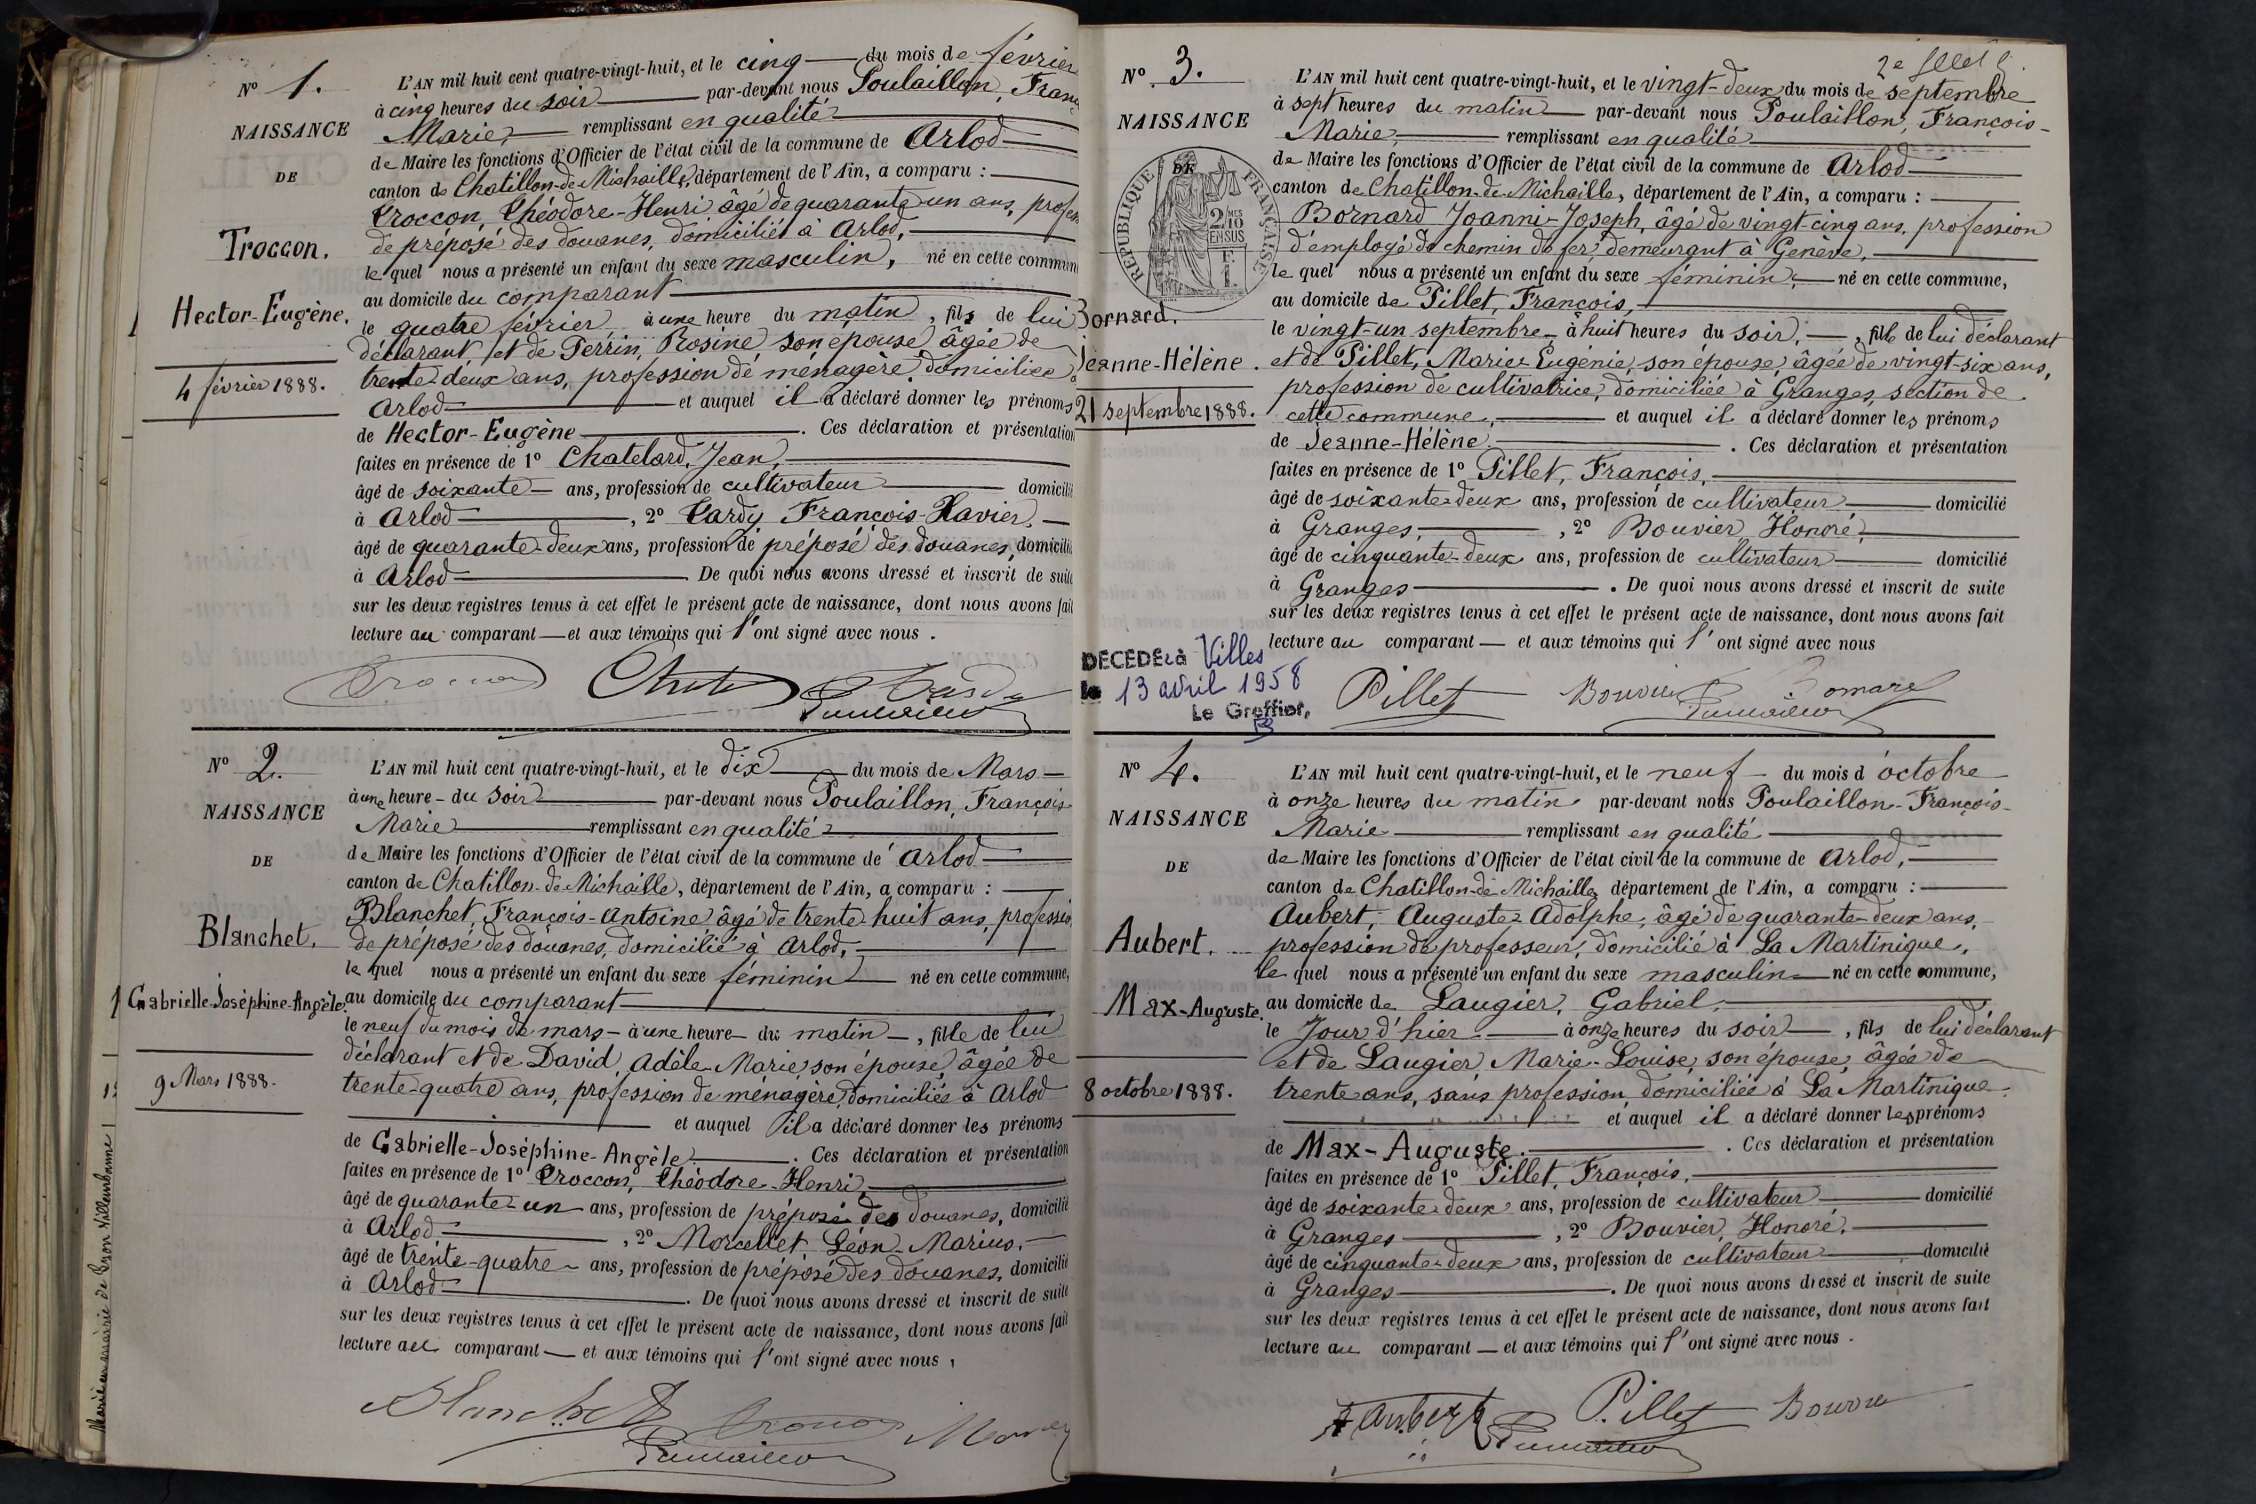 N° 1.
NAISSANCE
DE
Troccon.
Hector-Eugène.
4 février 1888.
L'AN mil huit cent quatre-vingt-huit, et le cinq du mois de février
à cinq heures du soir par-devant nous Poulaillon, Franç
Marie, remplissant en qualité
de Maire les fonctions d'Officier de l'état civil de la commune de Arlod
canton de Chatillon-de-Michaille, département de l'Ain, a comparu :
Troccon, Théodore-Henri âgé de quarante-un ans, profess
de préposé des douanes, domicilié à Arlod,
le quel nous a présenté un enfant du sexe masculin, né en cette commun
au domicile du comparant
le quatre février à une heure du matin, fils de lui
déclarant, et de Perrin, Rosine son épouse âgée de
trente-deux ans, profession de ménagère, domiciliée à
Arlod et auquel il a déclaré donner les prénoms
de Hector-Eugène. Ces déclaration et présentation
faites en présence de 1° Chatelard, Jean,
âgé de soixante ans, profession de cultivateur domicilié
à Arlod, 2° Tardy François-Xavier,
âgé de quarante-deux ans, profession de préposé des douanes, domicilié
à Arlod De quoi nous avons dressé et inscrit de suite
sur les deux registres tenus à cet effet le présent acte de naissance, dont nous avons fait
lecture au comparant et aux témoins qui l'ont signé avec nous.
N° 2.
NAISSANCE
DE
Blanchet.
Gabrielle-Joséphine-Angèle.
9 Mars 1888.
L'AN mil huit cent quatre-vingt-huit, et le dix du mois de Mars
à une heure du soir par-devant nous Poulaillon, François
Marie remplissant en qualité
de Maire les fonctions d'Officier de l'état civil de la commune de Arlod
canton de Chatillon-de-Michaille, département de l'Ain, a comparu :
Blanchet, François-Antoine âgé de trente-huit ans, professio
de préposé des douanes, domicilié à Arlod,
le quel nous a présenté un enfant du sexe féminin né en cette commune,
au domicile du comparant
le neuf du mois de mars à une heure du matin, fille de lui
déclarant et de David, Adèle-Marie son épouse, âgée de
trente-quatre ans, profession de ménagère, domiciliés à Arlod
et auquel il a déclaré donner les prénoms
de Gabrielle-Joséphine-Angèle. Ces déclaration et présentation
faites en présence de 1° Troccon, Théodore-Henri,
âgé de quarante-un ans, profession de préposé des douanes, domicilié
à Arlod, 2° Marcellet Léon-Marius,
âgé de trente-quatre ans, profession de préposé des douanes, domicilié
à Arlod. De quoi nous avons dressé et inscrit de suite
sur les deux registres tenus à cet effet le présent acte de naissance, dont nous avons fait
lecture au comparant et aux témoins qui l'ont signé avec nous,
Blanchet
N° 3.
NAISSANCE
DE
RÉPUBLIQUE FRANÇAISE
2 MES
10
EN SUS
Bornard.
Jeanne-Hélène.
21 septembre 1888.
DECEDE à Villes
le 13 avril 1958
Le Greffier,
L'AN mil huit cent quatre-vingt-huit, et le vingt-deux du mois de septembre
à sept heures du matin par-devant nous Poulaillon, François-
Marie, remplissant en qualité
de Maire les fonctions d'Officier de l'état civil de la commune de Arlod
canton de Chatillon-de-Michaille, département de l'Ain, a comparu :
Bornard Joanni-Joseph, âgé de vingt-cinq ans, profession
d'employé de chemin de fer, demeurant à Genève,
le quel nous a présenté un enfant du sexe féminin, né en cette commune,
au domicile de Pillet, François,
le vingt-un septembre à huit heures du soir, fille de lui déclarant
et de Pillet, Marie-Eugénie, son épouse, âgée de vingt-six ans,
profession de cultivatrice, domiciliée à Granges, section de
cette commune, et auquel il a déclaré donner les prénoms
de Jeanne-Hélène. Ces déclaration et présentation
faites en présence de 1° Pillet, François,
âgé de soixante-deux ans, profession de cultivateur domicilié
à Granges, 2° Bouvier Honoré,
âgé de cinquante-deux ans, profession de cultivateur domicilié
à Granges. De quoi nous avons dressé et inscrit de suite
sur les deux registres tenus à cet effet le présent acte de naissance, dont nous avons fait
lecture au comparant et aux témoins qui l'ont signé avec nous
Pillet Bouvier Bornard
N° 4.
NAISSANCE
DE
Aubert.
Max-Auguste.
8 octobre 1888.
L'AN mil huit cent quatre-vingt-huit, et le neuf du mois d'octobre
à onze heures du matin par-devant nous Poulaillon-François-
Marie remplissant en qualité
de Maire les fonctions d'Officier de l'état civil de la commune de Arlod,
canton de Chatillon-de-Michaille département de l'Ain, a comparu :
Aubert, Auguste-Adolphe, âgé de quarante-deux ans,
profession de professeur, domicilié à La Martinique,
le quel nous a présenté un enfant du sexe masculin né en cette commune,
au domicile de Laugier, Gabriel,
le Jour d'hier à onze heures du soir, fils de lui déclarant
et de Laugier Marie-Louise, son épouse, âgée de
trente ans, sans profession, domiciliée à La Martinique
et auquel il a déclaré donner les prénoms
de Max-Auguste. Ces déclaration et présentation
faites en présence de 1° Pillet, François,
âgé de soixante-deux ans, profession de cultivateur domicilié
à Granges, 2° Bouvier, Honoré,
âgé de cinquante-deux ans, profession de cultivateur domicilié
à Granges. De quoi nous avons dressé et inscrit de suite
sur les deux registres tenus à cet effet le présent acte de naissance, dont nous avons fait
lecture au comparant et aux témoins qui l'ont signé avec nous.
Aubert Pillet Bouvier